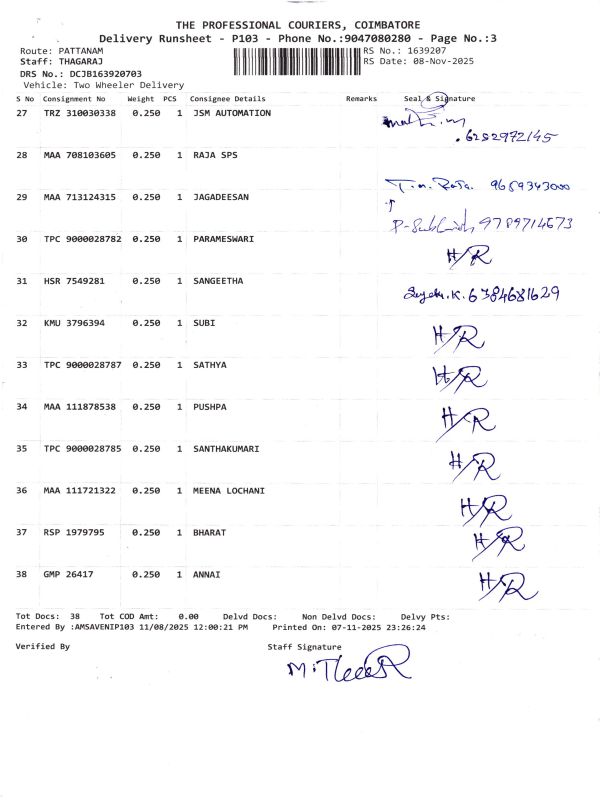 THE PROFESSIONAL COURIERS, COIMBATORE
Delivery Runsheet - P103 - Phone No.:9047080280 - Page No.:3
Route: PATTANAM RS No.: 1639207
Staff: THAGARAJ RS Date: 08-Nov-2025
DRS No.: DCJB163920703
Vehicle: Two Wheeler Delivery
S No Consignment No Weight PCS Consignee Details Remarks Seal & Signature
27 TRZ 310030338 0.250 1 JSM AUTOMATION
.6282972145
28 MAA 708103605 0.250 1 RAJA SPS
T.M. Raja. 9659343000
29 MAA 713124315 0.250 1 JAGADEESAN
9789714673
30 TPC 9000028782 0.250 1 PARAMESWARI H/R
31 HSR 7549281 0.250 1 SANGEETHA K. 6384681629
32 KMU 3796394 0.250 1 SUBI H/R
33 TPC 9000028787 0.250 1 SATHYA H/R
34 MAA 111878538 0.250 1 PUSHPA H/R
35 TPC 9000028785 0.250 1 SANTHAKUMARI H/R
36 MAA 111721322 0.250 1 MEENA LOCHANI H/R
37 RSP 1979795 0.250 1 BHARAT H/R
38 GMP 26417 0.250 1 ANNAI H/R
Tot Docs: 38 Tot COD Amt: 0.00 Delvd Docs: Non Delvd Docs: Delvy Pts:
Entered By :AMSAVENIP103 11/08/2025 12:00:21 PM Printed On: 07-11-2025 23:26:24
Verified By Staff Signature